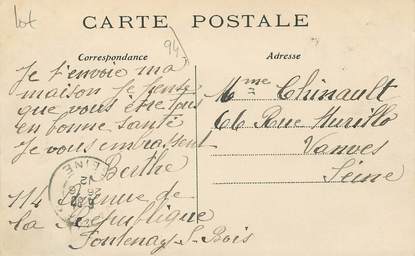 lot
94
CARTE POSTALE
Correspondance
Adresse
Je t'envoie ma
maison Je pense
que vous être tous
en bonne santé
Je vous embrassent
Berthe
114 Avenue de
la République
Fontenay S. Bois
Mme Chinault
66 Rue Murillo
Vanves
Seine
SEINE